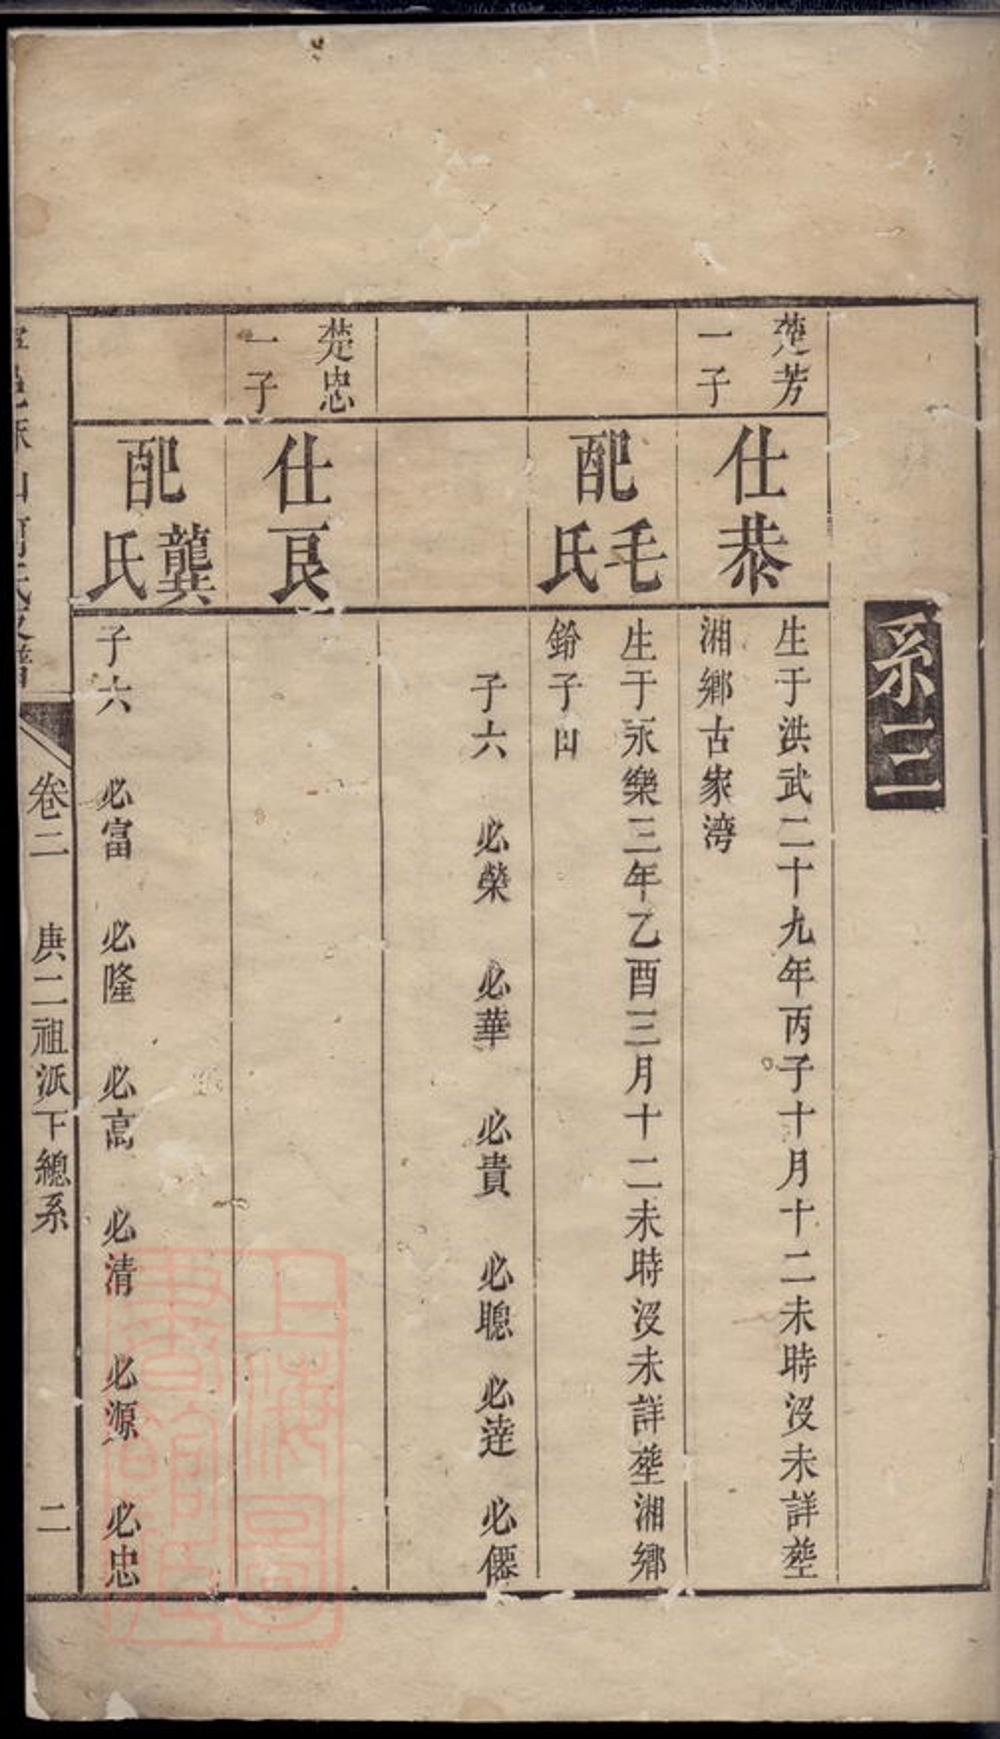 系三
楚芳
一子
仕恭
生于洪武二十九年丙子十月十二未時沒未詳塟
湘鄉古家湾
配毛氏
生于永樂三年乙酉三月十二未時沒未詳塟湘鄉
鈴子凹
子六 必榮 必華 必貴 必聰 必達 必僊
楚忠
一子
仕良
配龔氏
子六 必富 必隆 必高 必清 必源 必忠
卷二 庚二祖派下總系 二
上海圖
書館藏